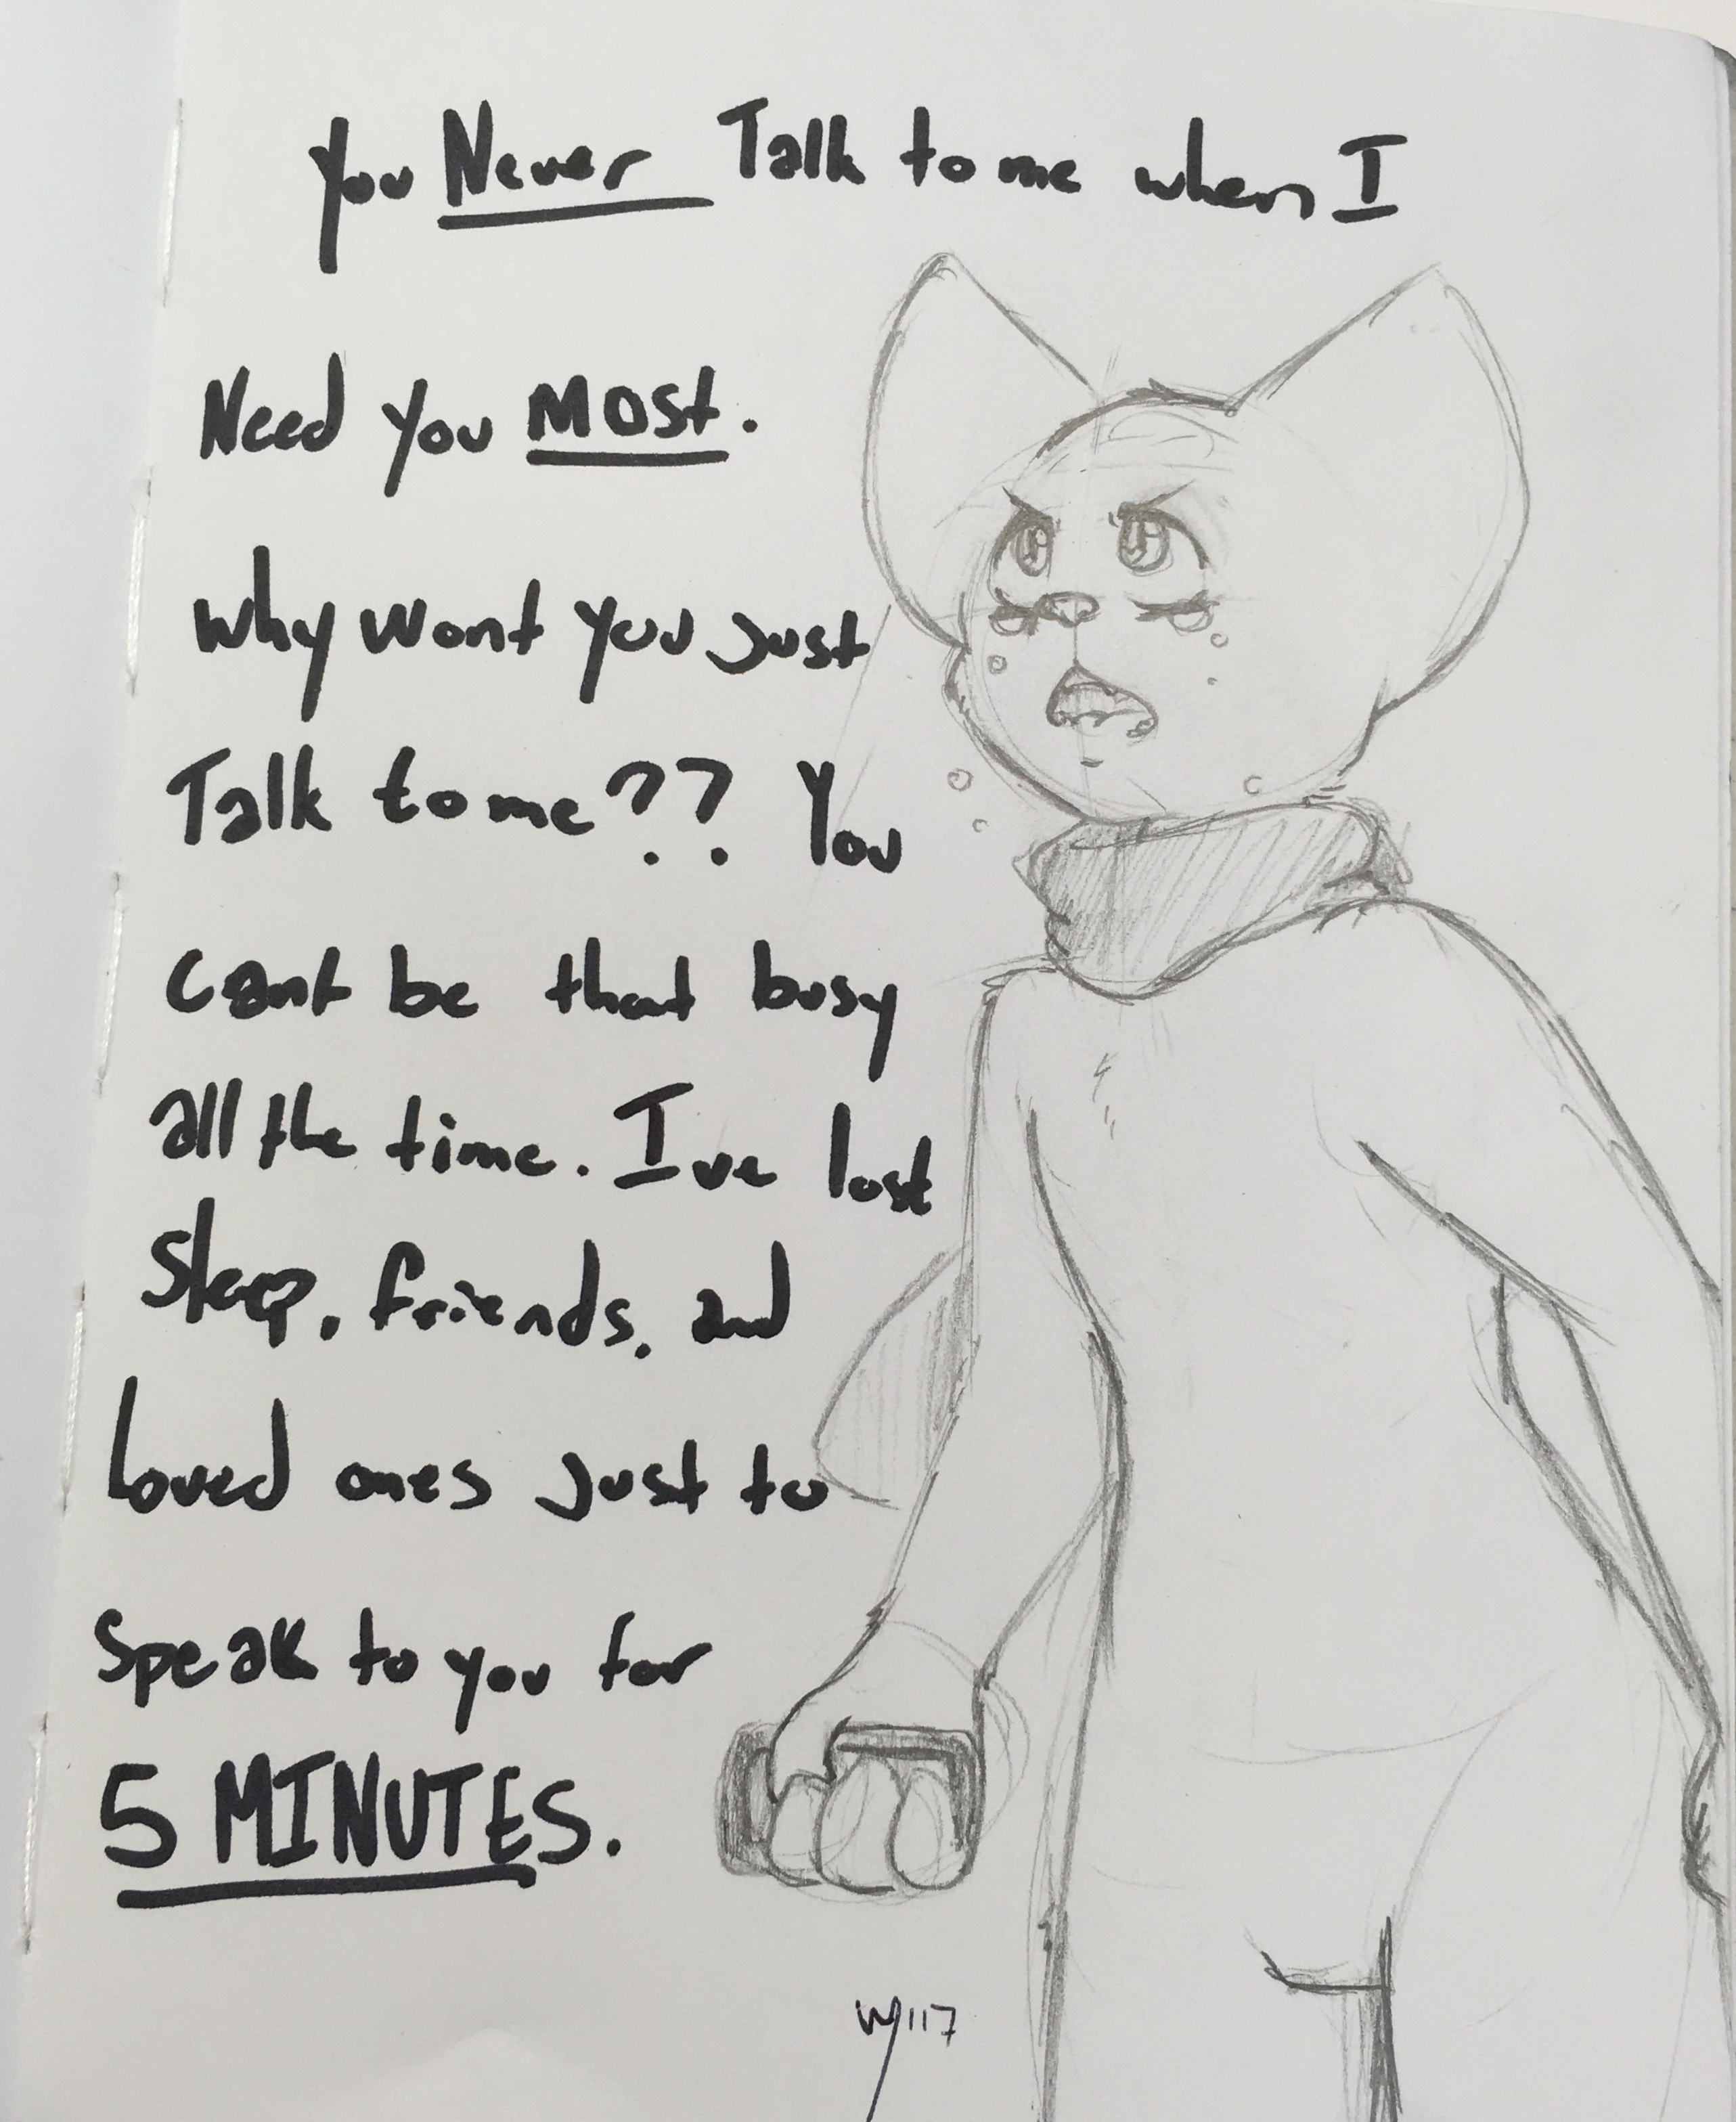 You Never Talk to me when I
Need you MOST.
Why wont you just
Talk to me?? You
cant be that busy
all the time. Ive lost
Sleep, friends, and
loved ones just to
Speak to you for
5 MINUTES.